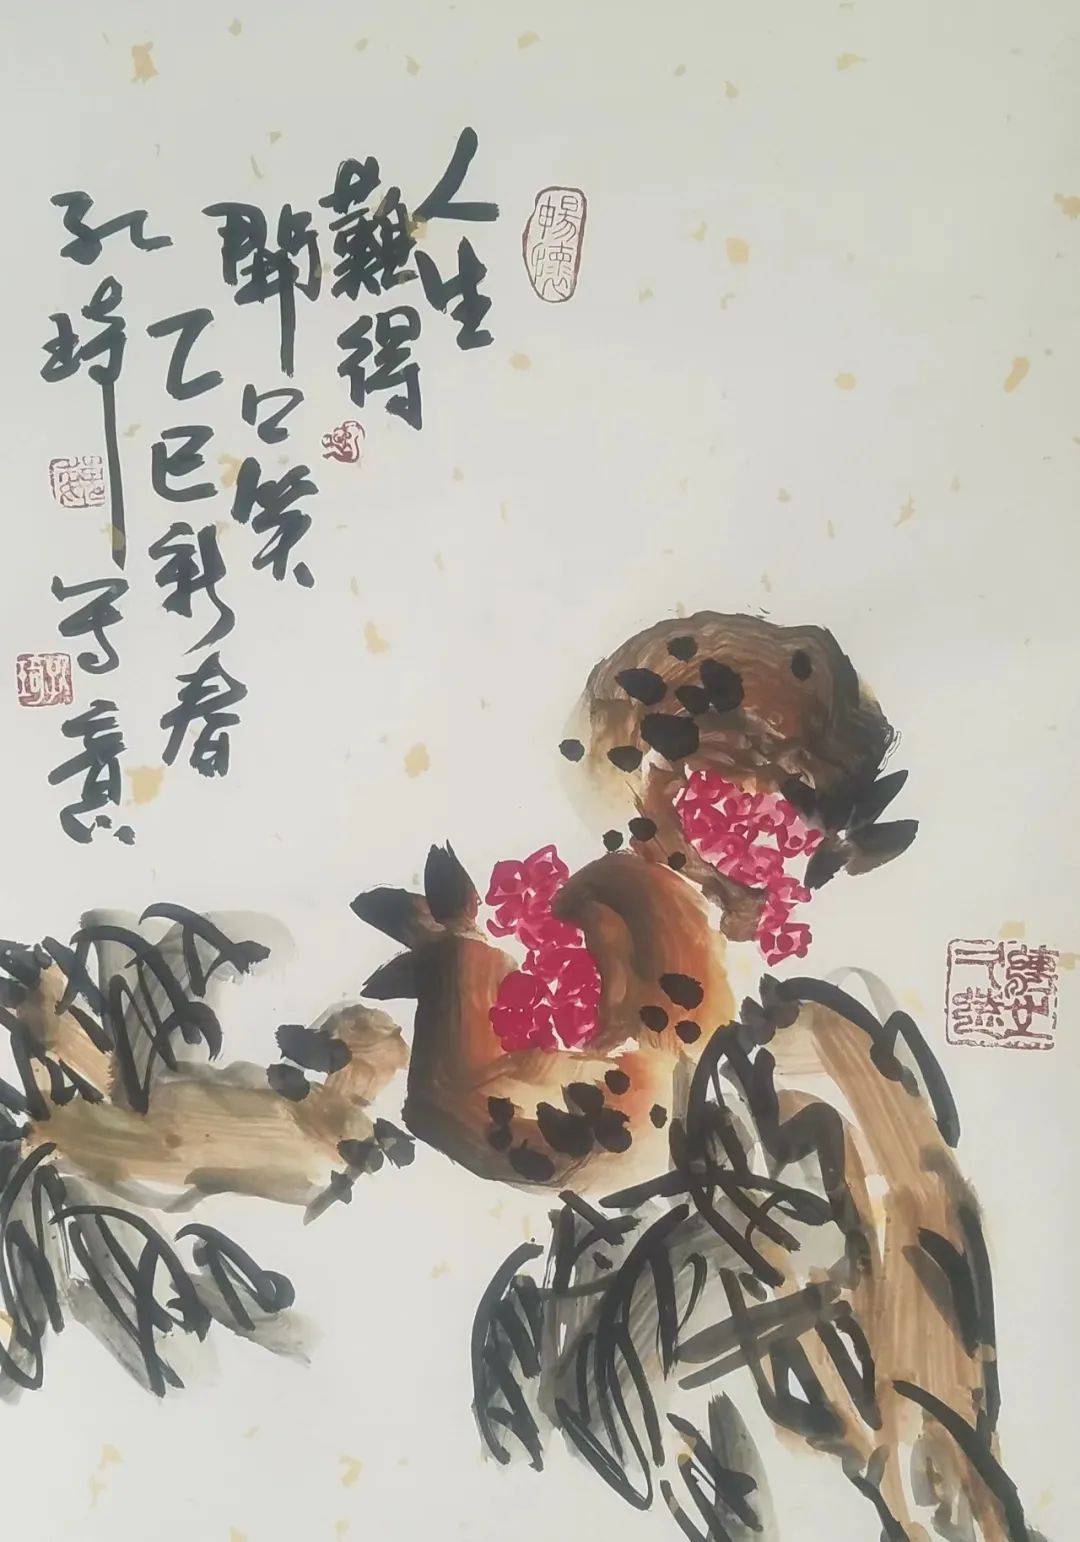 人生
難得
開口笑
乙巳新春
孔琦寫意
暢懷